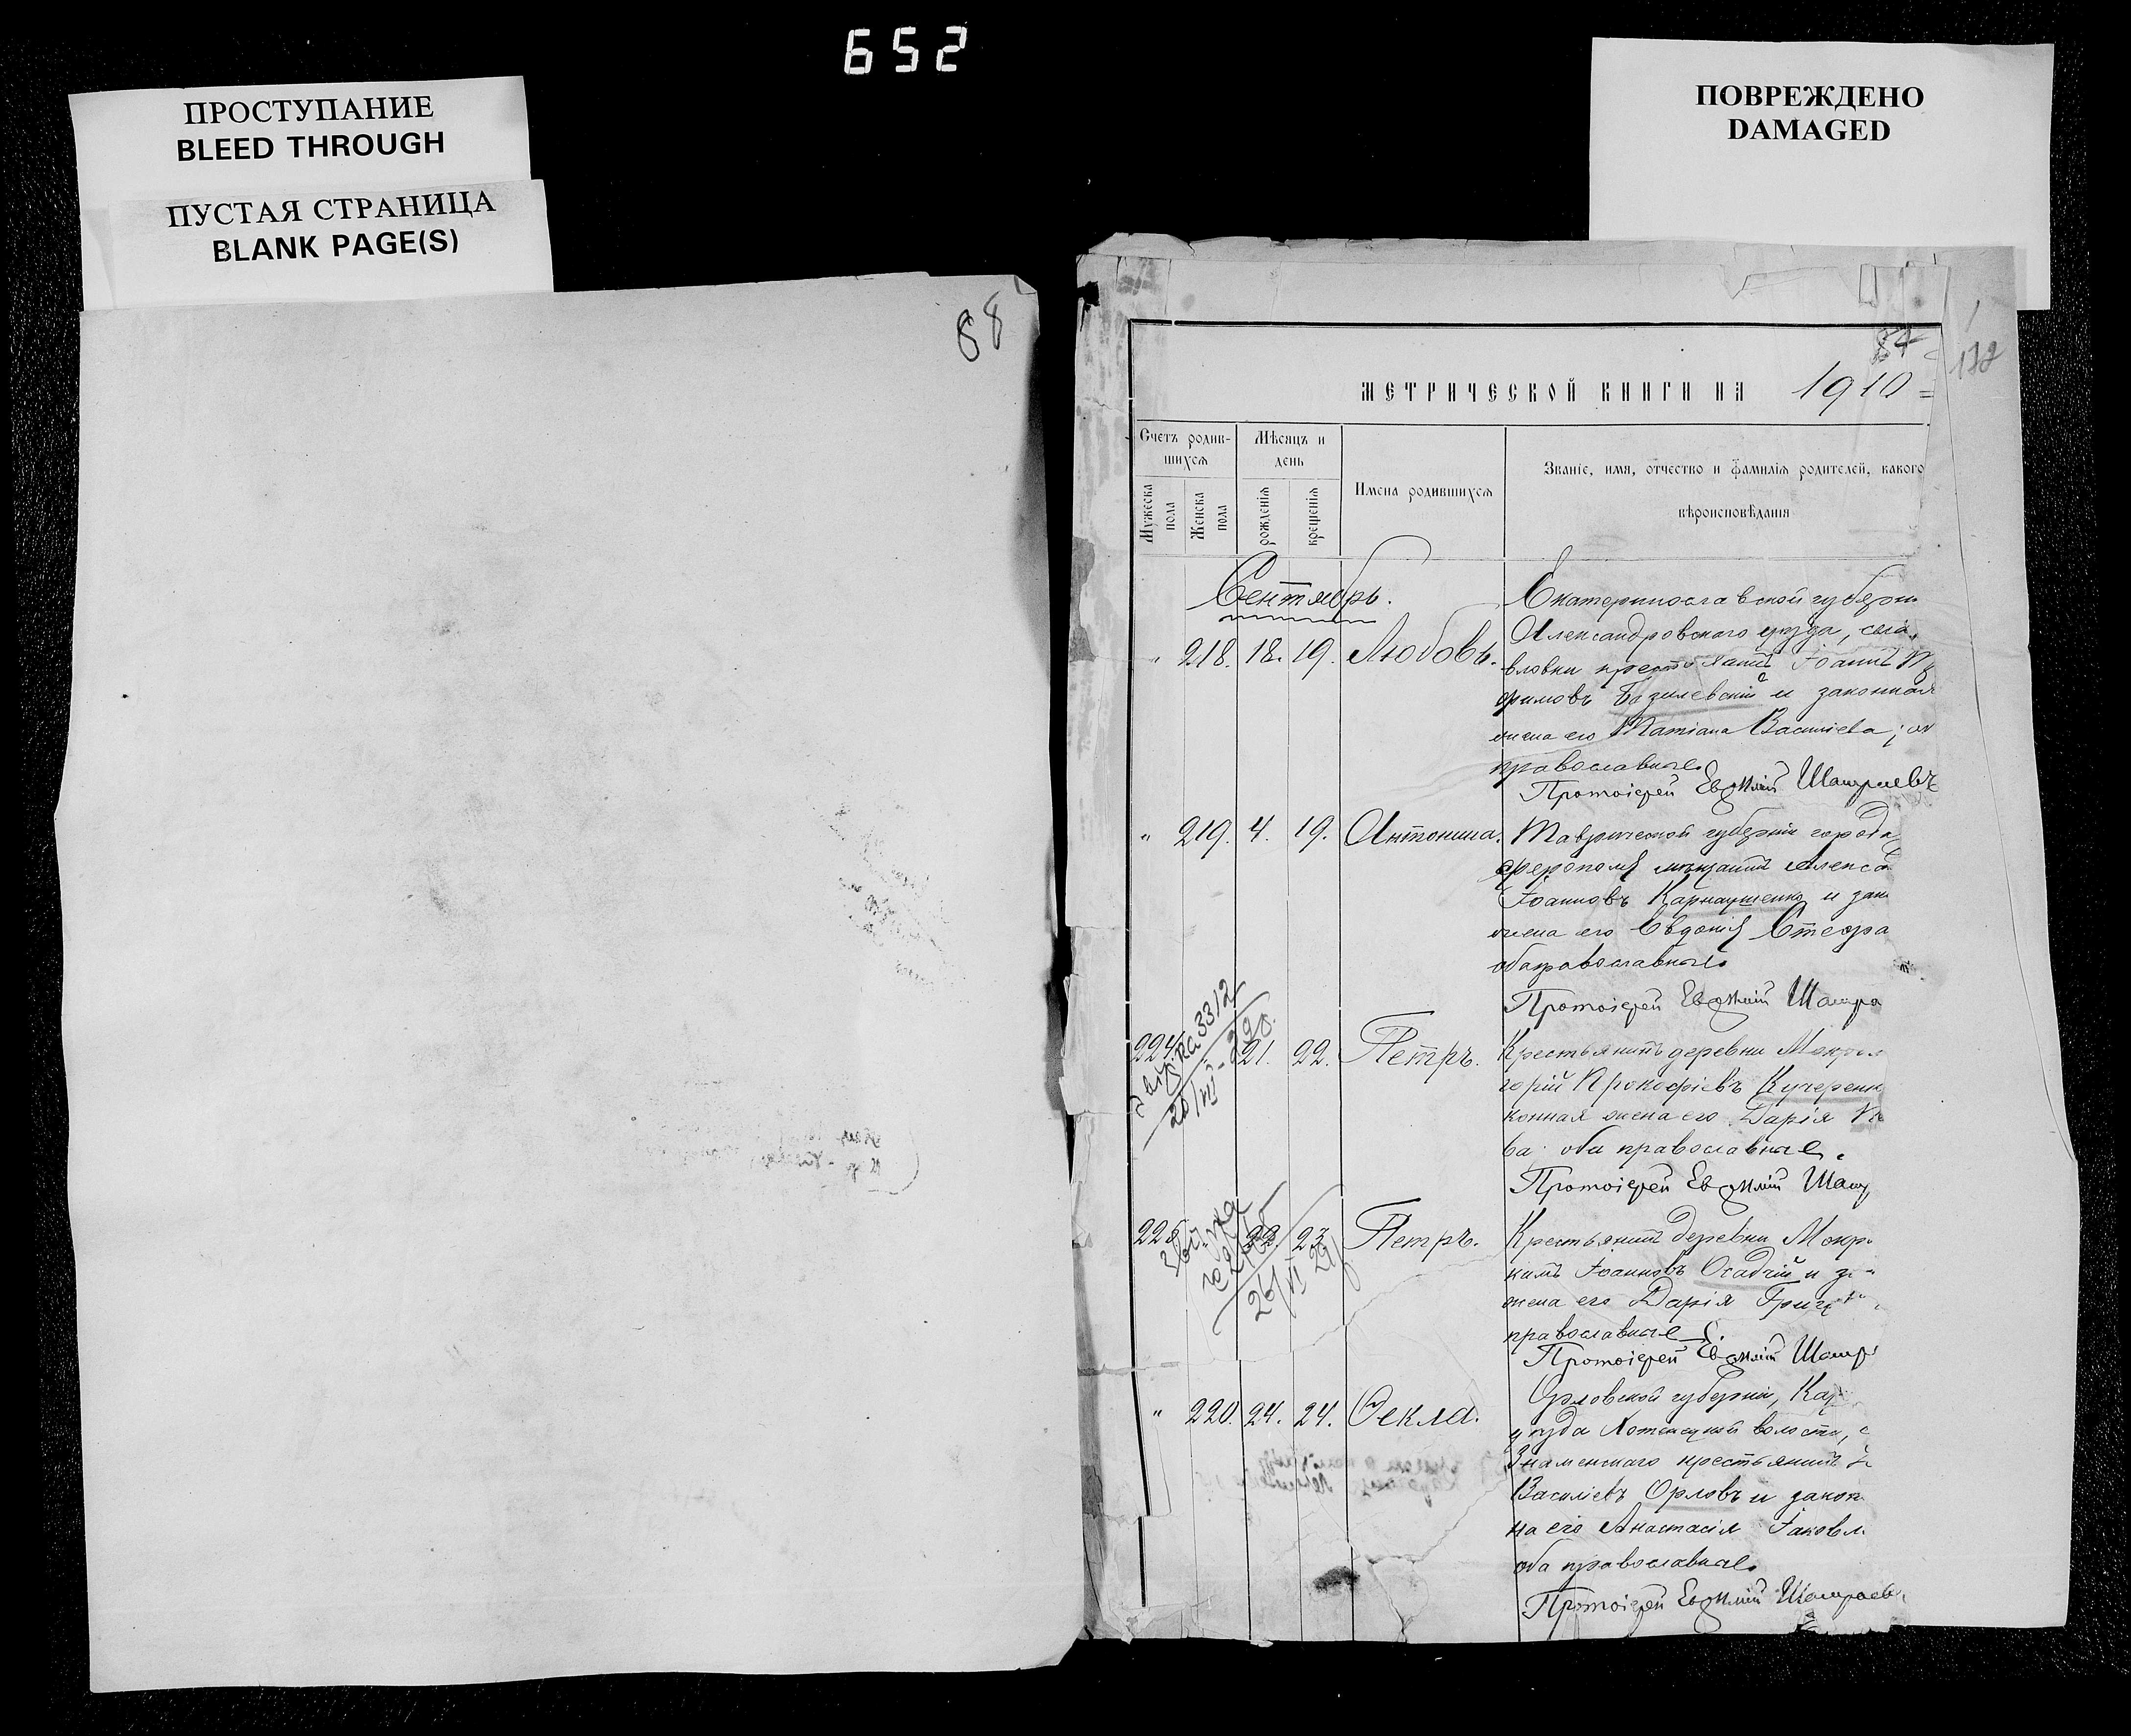 652
ПРОСТУПАНИЕ
BLEED THROUGH
ПУСТАЯ СТРАНИЦА
BLANK PAGE(S)
ПОВРЕЖДЕНО
DAMAGED
88
87
МЕТРИЧЕСКОЙ КНИГИ НА 1910
Счетъ родив-
шихся
Мужеска пола
Женска пола
Мѣсяцъ и
день
рожденія
крещенія
Имена родившихся
Званіе, имя, отчество и фамилія родителей, какого
вѣроисповѣданія
Сентябрь.
Екатеринославской губерн
" 218. 18. 19. Любовь.
Александровскаго уѣзда, села
вловки крестьянинъ Іоаннъ
фимовъ Базилевскій и законная
жена его Татіана Василіева;
православные.
Протоіерей Евѳимій Шатраевъ
" 219. 4. 19. Антонина.
Таврической губерніи города
ферополя мѣщанинъ Алекса
Іоанновъ Карнаушенко и зак
жена его Евдокія Стефа
оба православные.
Протоіерей Евѳимій Шатра
224 21. 22. Петръ.
3312
Крестьянинъ деревни Мокро
горій Прокофіевъ Кучеренк
конная жена его Дарія
ва оба православные.
Протоіерей Евѳимій Шат
225 22. 23. Петръ.
Крестьянинъ деревни Мокр
кимъ Іоанновъ Осадчій и з
жена его Дарія Григ
православные.
Протоіерей Евѳимій Шатр
" 220. 24. 24. Ѳекла.
Орловской губерніи, Кар
уѣзда волости, с
Знаменскаго крестьянинъ
Василіевъ Орловъ и закон
на его Анастасія Іаковл
оба православные.
Протоіерей Евѳимій Шатраев